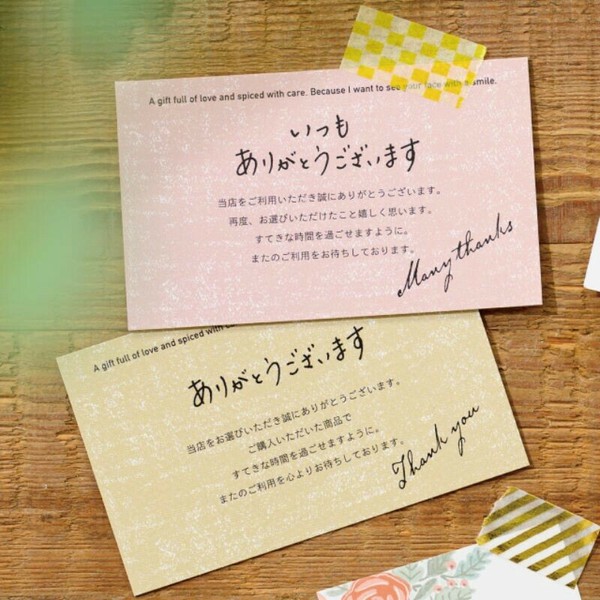 A gift full of love and spiced with care. Because I want to see your face with a smile.
いつも
ありがとうございます
当店をご利用いただき誠にありがとうございます。
再度、お選びいただけたこと嬉しく思います。
すてきな時間を過ごせますように。
またのご利用をお待ちしております。
Many thanks
A gift full of love and spiced with
ありがとうございます
当店をお選びいただき誠にありがとうございます。
ご購入いただいた商品で
すてきな時間を過ごせますように。
またのご利用を心よりお待ちしております。
Thank you